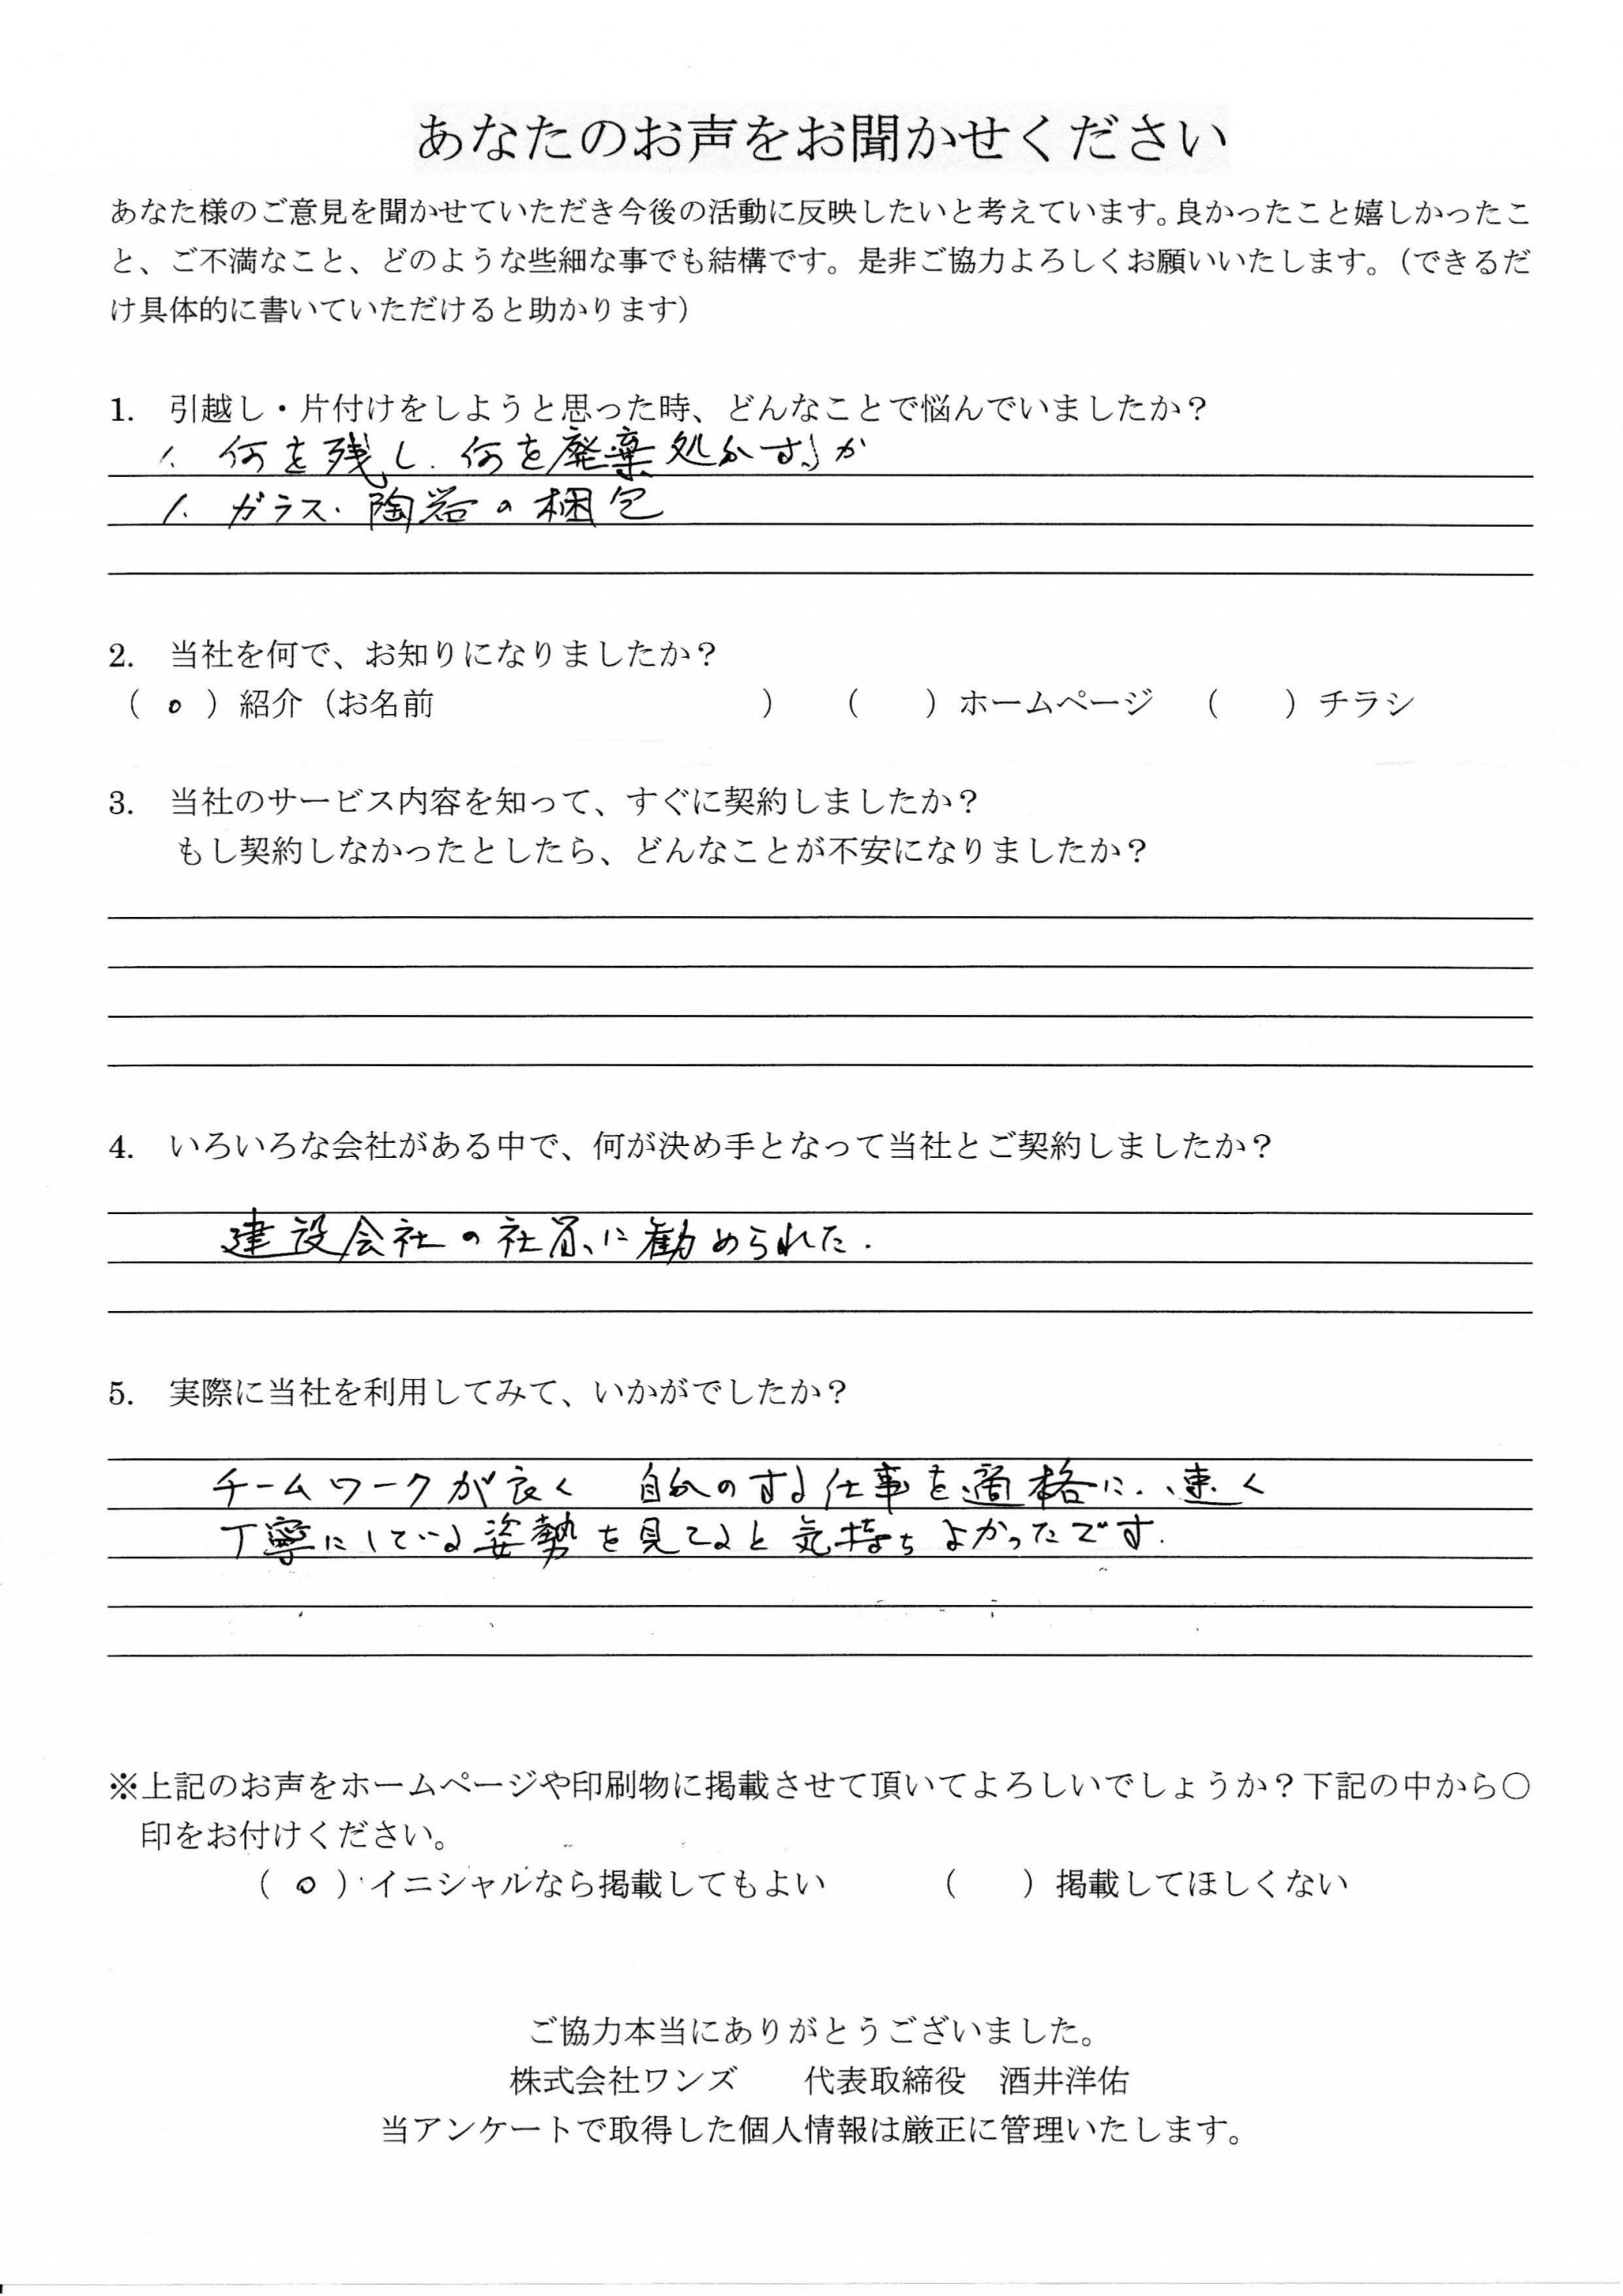 あなたのお声をお聞かせください
あなた様のご意見を聞かせていただき今後の活動に反映したいと考えています。良かったこと嬉しかったこ
と、ご不満なこと、どのような些細な事でも結構です。是非ご協力よろしくお願いいたします。（できるだ
け具体的に書いていただけると助かります）
1. 引越し・片付けをしようと思った時、どんなことで悩んでいましたか？
1. 何を残し、何を廃棄処分するか
1. ガラス・陶器の梱包
2. 当社を何で、お知りになりましたか？
（ o ）紹介（お名前 ） （ ）ホームページ （ ）チラシ
3. 当社のサービス内容を知って、すぐに契約しましたか？
もし契約しなかったとしたら、どんなことが不安になりましたか？
4. いろいろな会社がある中で、何が決め手となって当社とご契約しましたか？
建設会社の社員に勧められた.
5. 実際に当社を利用してみて、いかがでしたか？
チームワークが良く 自分のする仕事を適格に、速く
丁寧にしている姿勢を見てると気持ちよかったです.
※上記のお声をホームページや印刷物に掲載させて頂いてよろしいでしょうか？下記の中から〇
印をお付けください。
（ o ）イニシャルなら掲載してもよい （ ）掲載してほしくない
ご協力本当にありがとうございました。
株式会社ワンズ 代表取締役 酒井洋佑
当アンケートで取得した個人情報は厳正に管理いたします。